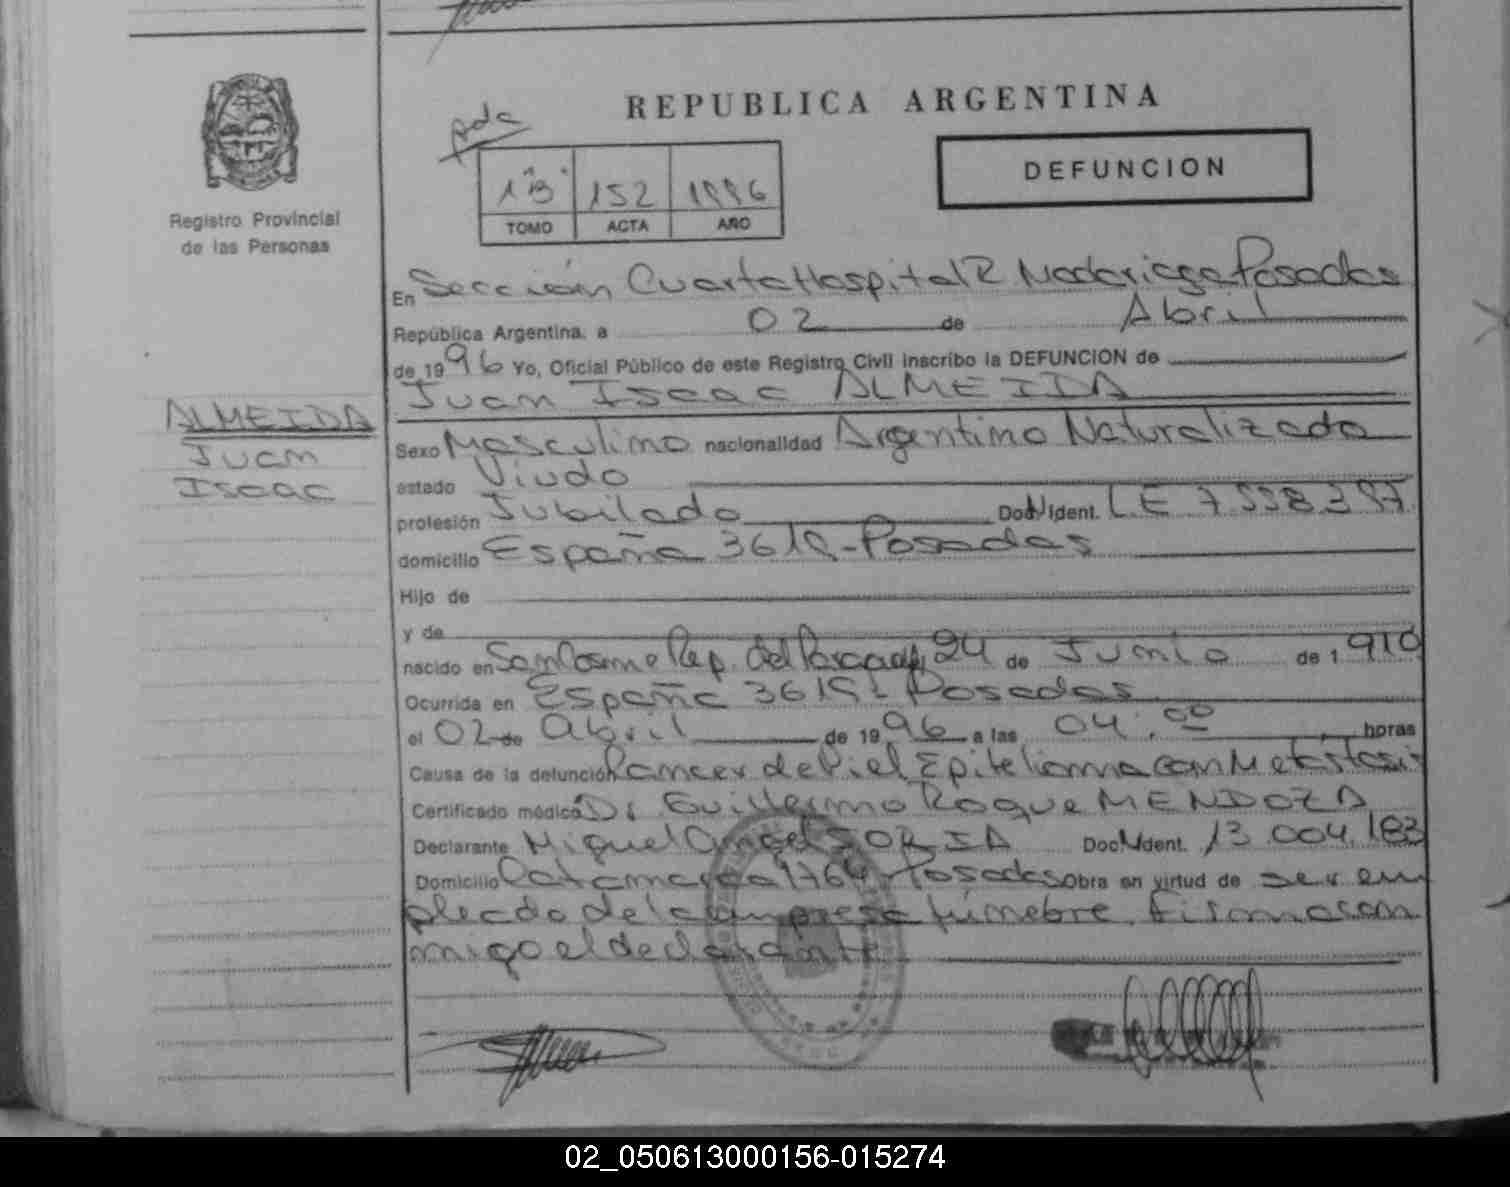 REPUBLICA ARGENTINA
DEFUNCION
Registro Provincial
de las Personas
1 "B" 152 1996
TOMO ACTA AÑO
En Sección Cuarta Hospital R Madariaga Posadas
República Argentina, a 02 de Abril
de 1996 Yo, Oficial Público de este Registro Civil inscribo la DEFUNCION de
Juan Isaac ALMEIDA
ALMEIDA
Juan
Isaac
Sexo Masculino nacionalidad Argentino Naturalizado
estado Viudo
profesión Jubilado Doc. Ident. LE 7.558.397
domicilio España 3619 - Posadas
Hijo de
y de
nacido en San Cosme Rep. del Paraguay 24 de Junio de 1910
Ocurrida en España 3619 - Posadas
el 02 de abril de 1996 a las 04:00 horas
Causa de la defunción Cancer de Piel Epitelioma con Metástasis
Certificado médico Dr Guillermo Roque MENDOZA
Declarante Miguel Angel SORIA Doc. Ident. 13.004.183
Domicilio Catamarca 1764 - Posadas obra en virtud de ser em
pleado de la empresa fúnebre. Firma con
migo el declarante
02_050613000156-015274